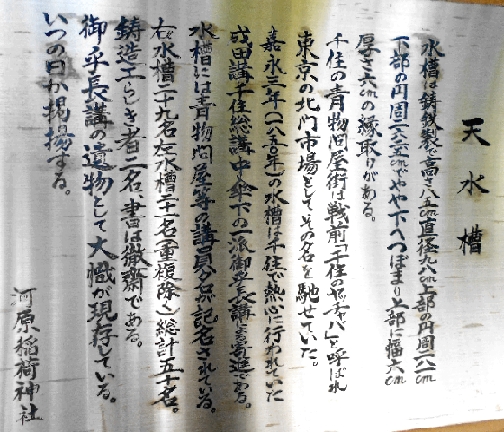 天水槽
水槽は鋳鉄製で高さ八五㎝直径九八㎝上部の円周二八八㎝
下部の円周二六六㎝でやや下へつぼまり上部に幅六㎝
厚さ六㎝の縁取りがある。
千住の青物問屋街は戦前「千住のヤッチャバ」と呼ばれ
東京の北門市場としてその名を馳せていた。
嘉永三年(一八五〇年)の水槽は千住で熱心に行われていた
成田講千住総講中傘下の一派御手長講の寄進である。
水槽には青物問屋等の講員名が記名されている。
右水槽二十九名左水槽二十一名(重複除く)総計五十名。
鋳造工らしき者二名、書は徴齋である。
御手長講の遺物として大幟が現存している。
いつの日か掲揚する。
河原稲荷神社